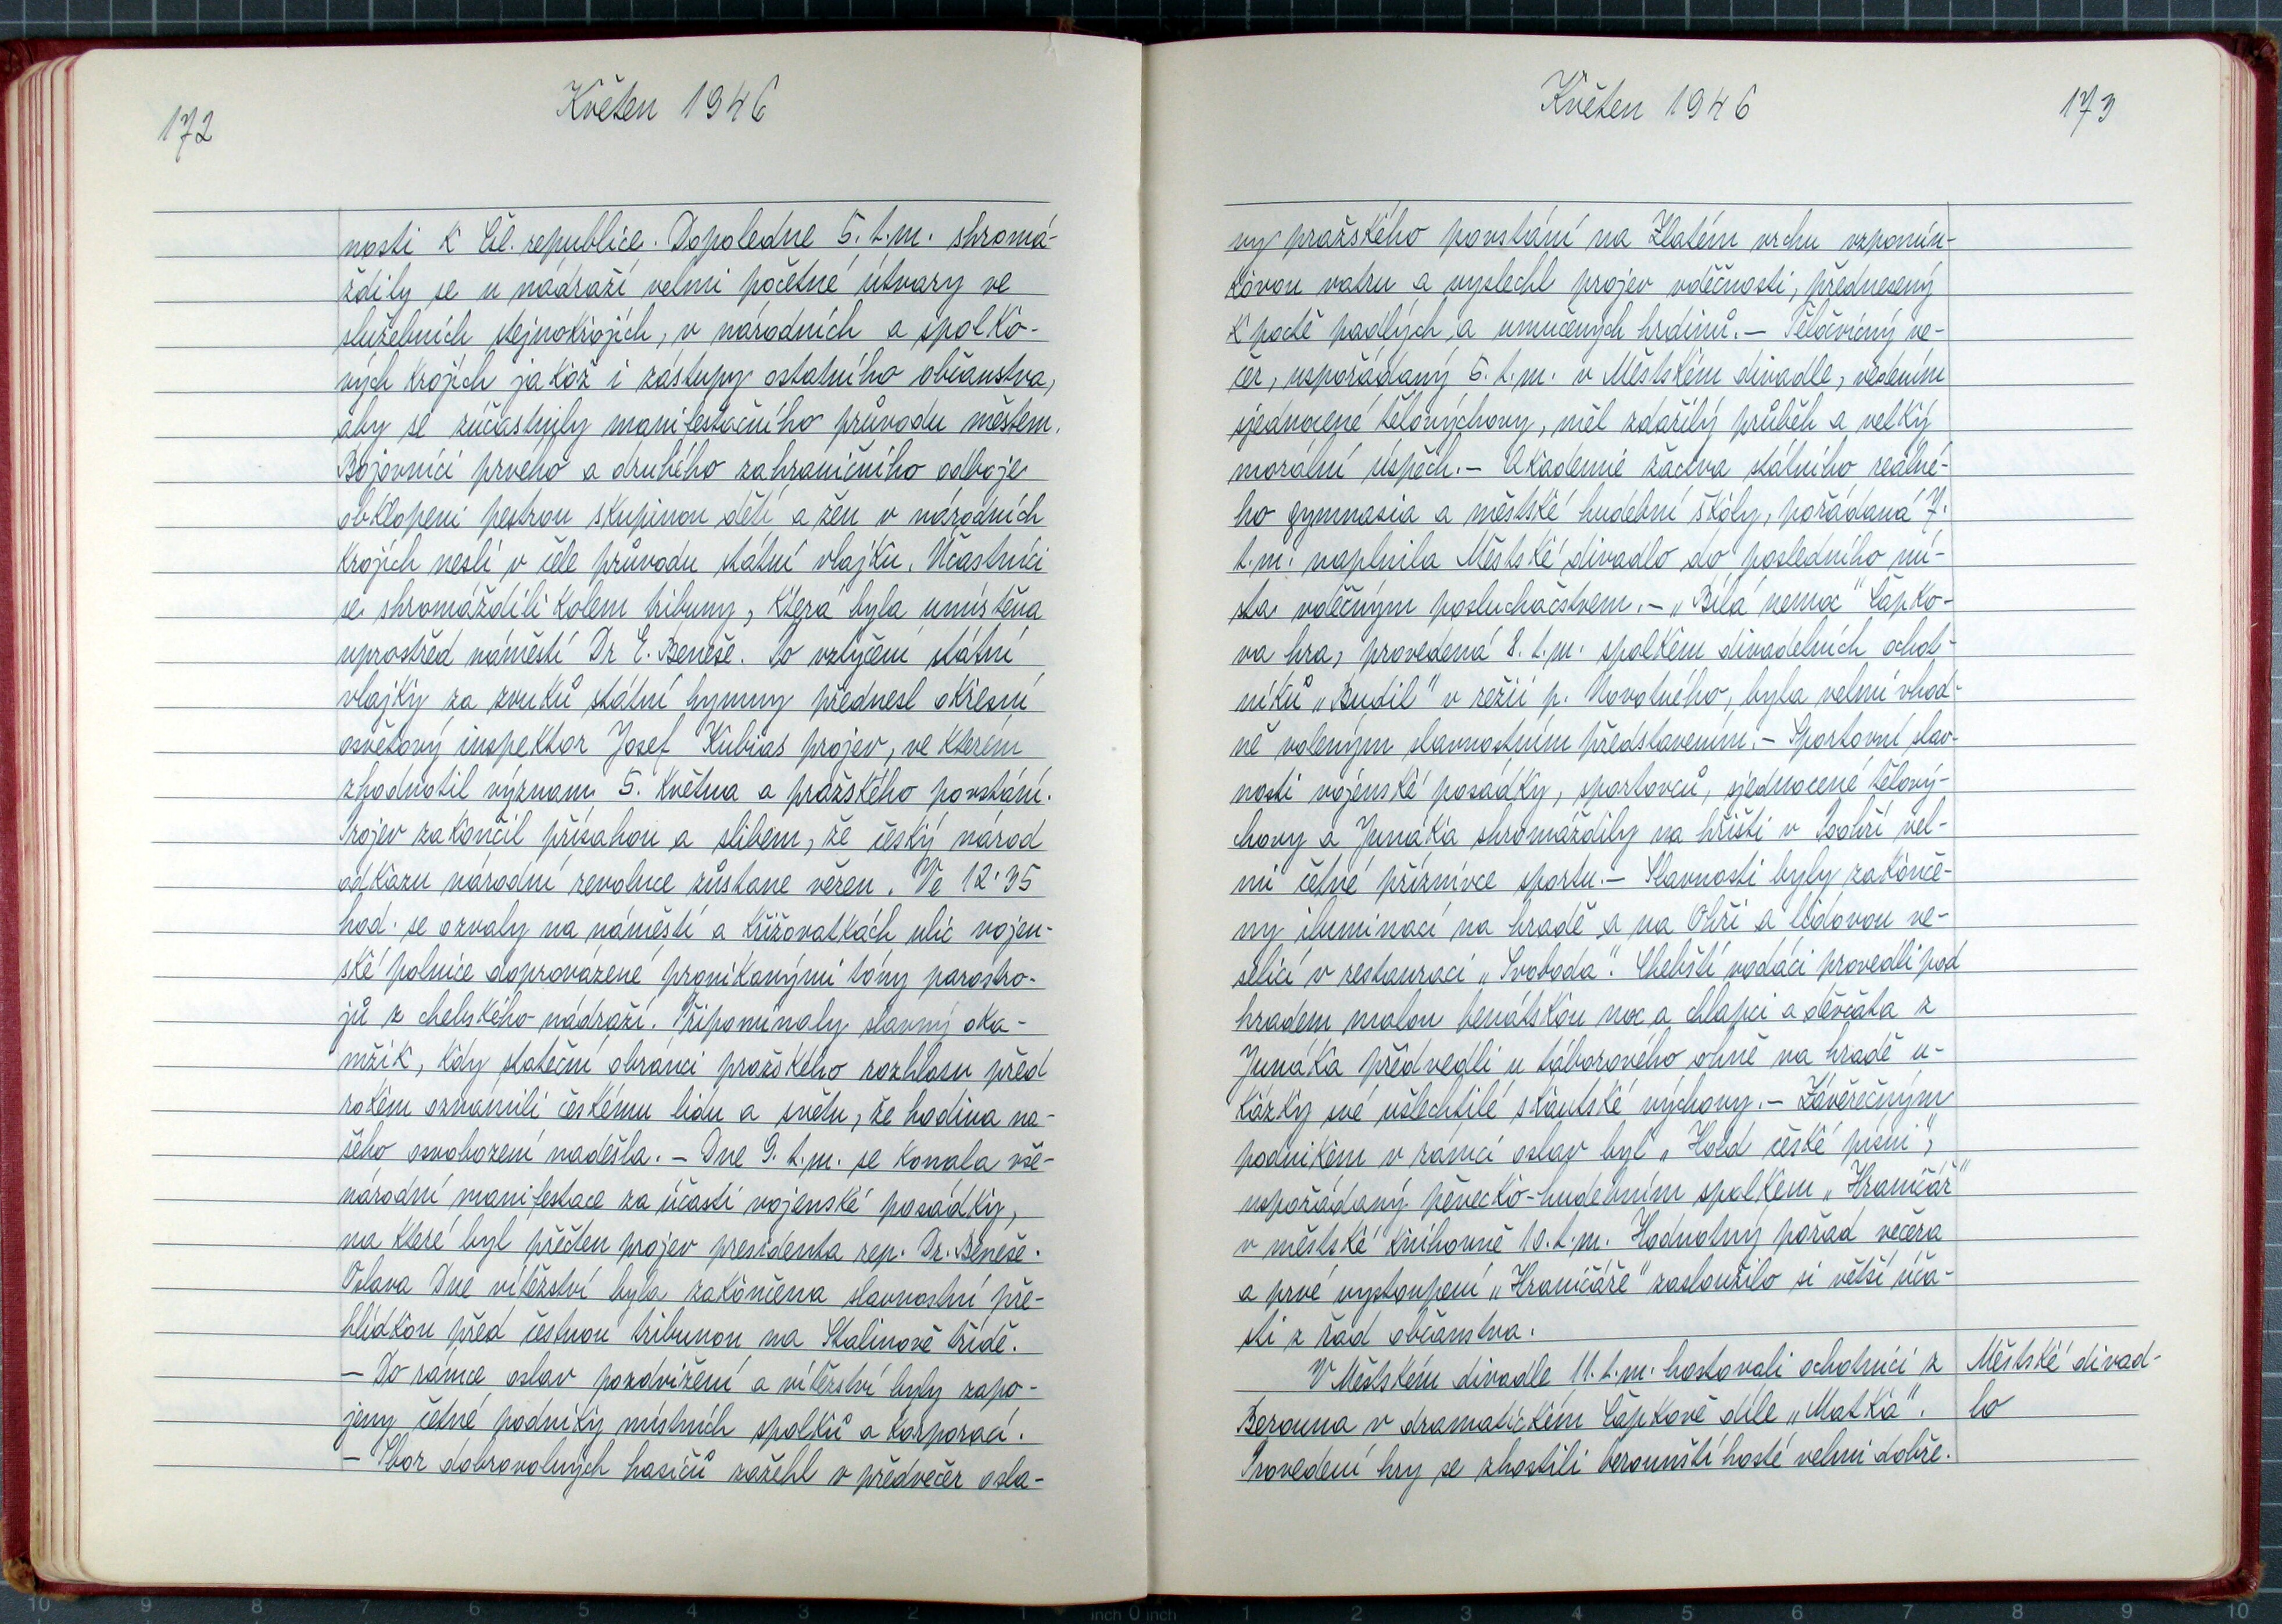 172
Květen 1946
nosti k Čsl. republice. Dopoledne 5. t.m. shromá-
ždily se u nádraží velmi početné útvary ve
služebních stejnokrojích, v národních a spolko-
vých krojích jakož i zástupy ostatního občanstva,
aby se zúčastnily manifestačního průvodu městem.
Bojovníci prvého a druhého zahraničního odboje
obklopeni pestrou skupinou dětí a žen v národních
krojích nesli v čele průvodu státní vlajku. Účastníci
se shromáždili kolem tribuny, která byla umístěna
uprostřed náměstí Dr E. Beneše. Po vztyčení státní
vlajky za zvuků státní hymny přednesl okresní
osvětový inspektor Josef Kubias projev, ve kterém
zhodnotil význam 5. května a pražského povstání.
Projev zakončil přísahou a slibem, že český národ
odkazu národní revoluce zůstane věren. Ve 12·35
hod. se ozvaly na náměstí a křižovatkách ulic vojen-
ské polnice doprovázené pronikavými tóny parostro-
jů z chebského nádraží. Připomínaly slavný oka-
mžik, kdy stateční obránci pražského rozhlasu před
rokem oznámili českému lidu a světu, že hodina na-
šeho osvobození nadešla. – Dne 9. t.m. se konala vše-
národní manifestace za účasti vojenské posádky,
na které byl přečten projev presidenta rep. Dr. Beneše.
Oslava Dne vítězství byla zakončena slavnostní pře-
hlídkou před čestnou tribunou na Stalinově třídě.
– Do rámce oslav pozdvižení a vítězství byly zapo-
jeny četné podniky místních spolků a korporací.
– Sbor dobrovolných hasičů zažehl v předvečer osla-
Květen 1946
173
vy pražského povstání na Zlatém vrchu vzpomín-
kovou vatru a vyslechl projev vděčnosti, přednesený
k poctě padlých a umučených hrdinů. – Tělocvičný ve-
čer, uspořádaný 5. t.m. v Městském divadle, vedením
sjednocené tělovýchovy, měl zdařilý průběh a velký
morální úspěch. – Akademie žactva státního reálné-
ho gymnasia a městské hudební školy, pořádaná 7.
t.m. naplnila Městské divadlo do posledního mí-
sta vděčným posluchačstvem. – „Bílá nemoc" Čapko-
va hra, provedená 8. t.m. spolkem divadelních ochot-
níků „Budil" v režii p. Novotného, byla velmi vhod-
ně voleným slavnostním představením. – Sportovní slav-
nosti vojenské posádky, sportovců, sjednocené tělový-
chovy a Junáka shromáždily na hřišti v Poohří vel-
mi četné příznivce sportu. – Slavnosti byly zakonče-
ny iluminací na hradě a na Ohři a lidovou ve-
selicí v restauraci „Svoboda". Chebští vodáci provedli pod
hradem malou benátskou noc a chlapci a děvčata z
Junáka předvedli u táborového ohně na hradě u-
kázky své ušlechtilé skautské výchovy. – Závěrečným
podnikem v rámci oslav byl „Hold české písni",
uspořádaný pěvecko-hudebním spolkem „Hraničář"
v městské knihovně 10. t.m. Hodnotný pořad večera
a prvé vystoupení „Hraničáře" zasloužilo si větší úča-
sti z řad občanstva.
V Městském divadle 11. t.m. hostovali ochotníci z
Městské divad-
Berouna v dramatickém Čapkově díle „Matka".
lo
Provedení hry se zhostili berounští hosté velmi dobře.
10 9 8 7 6 5 4 3 2 1 inch 0 inch 1 2 3 4 5 6 7 8 9 10